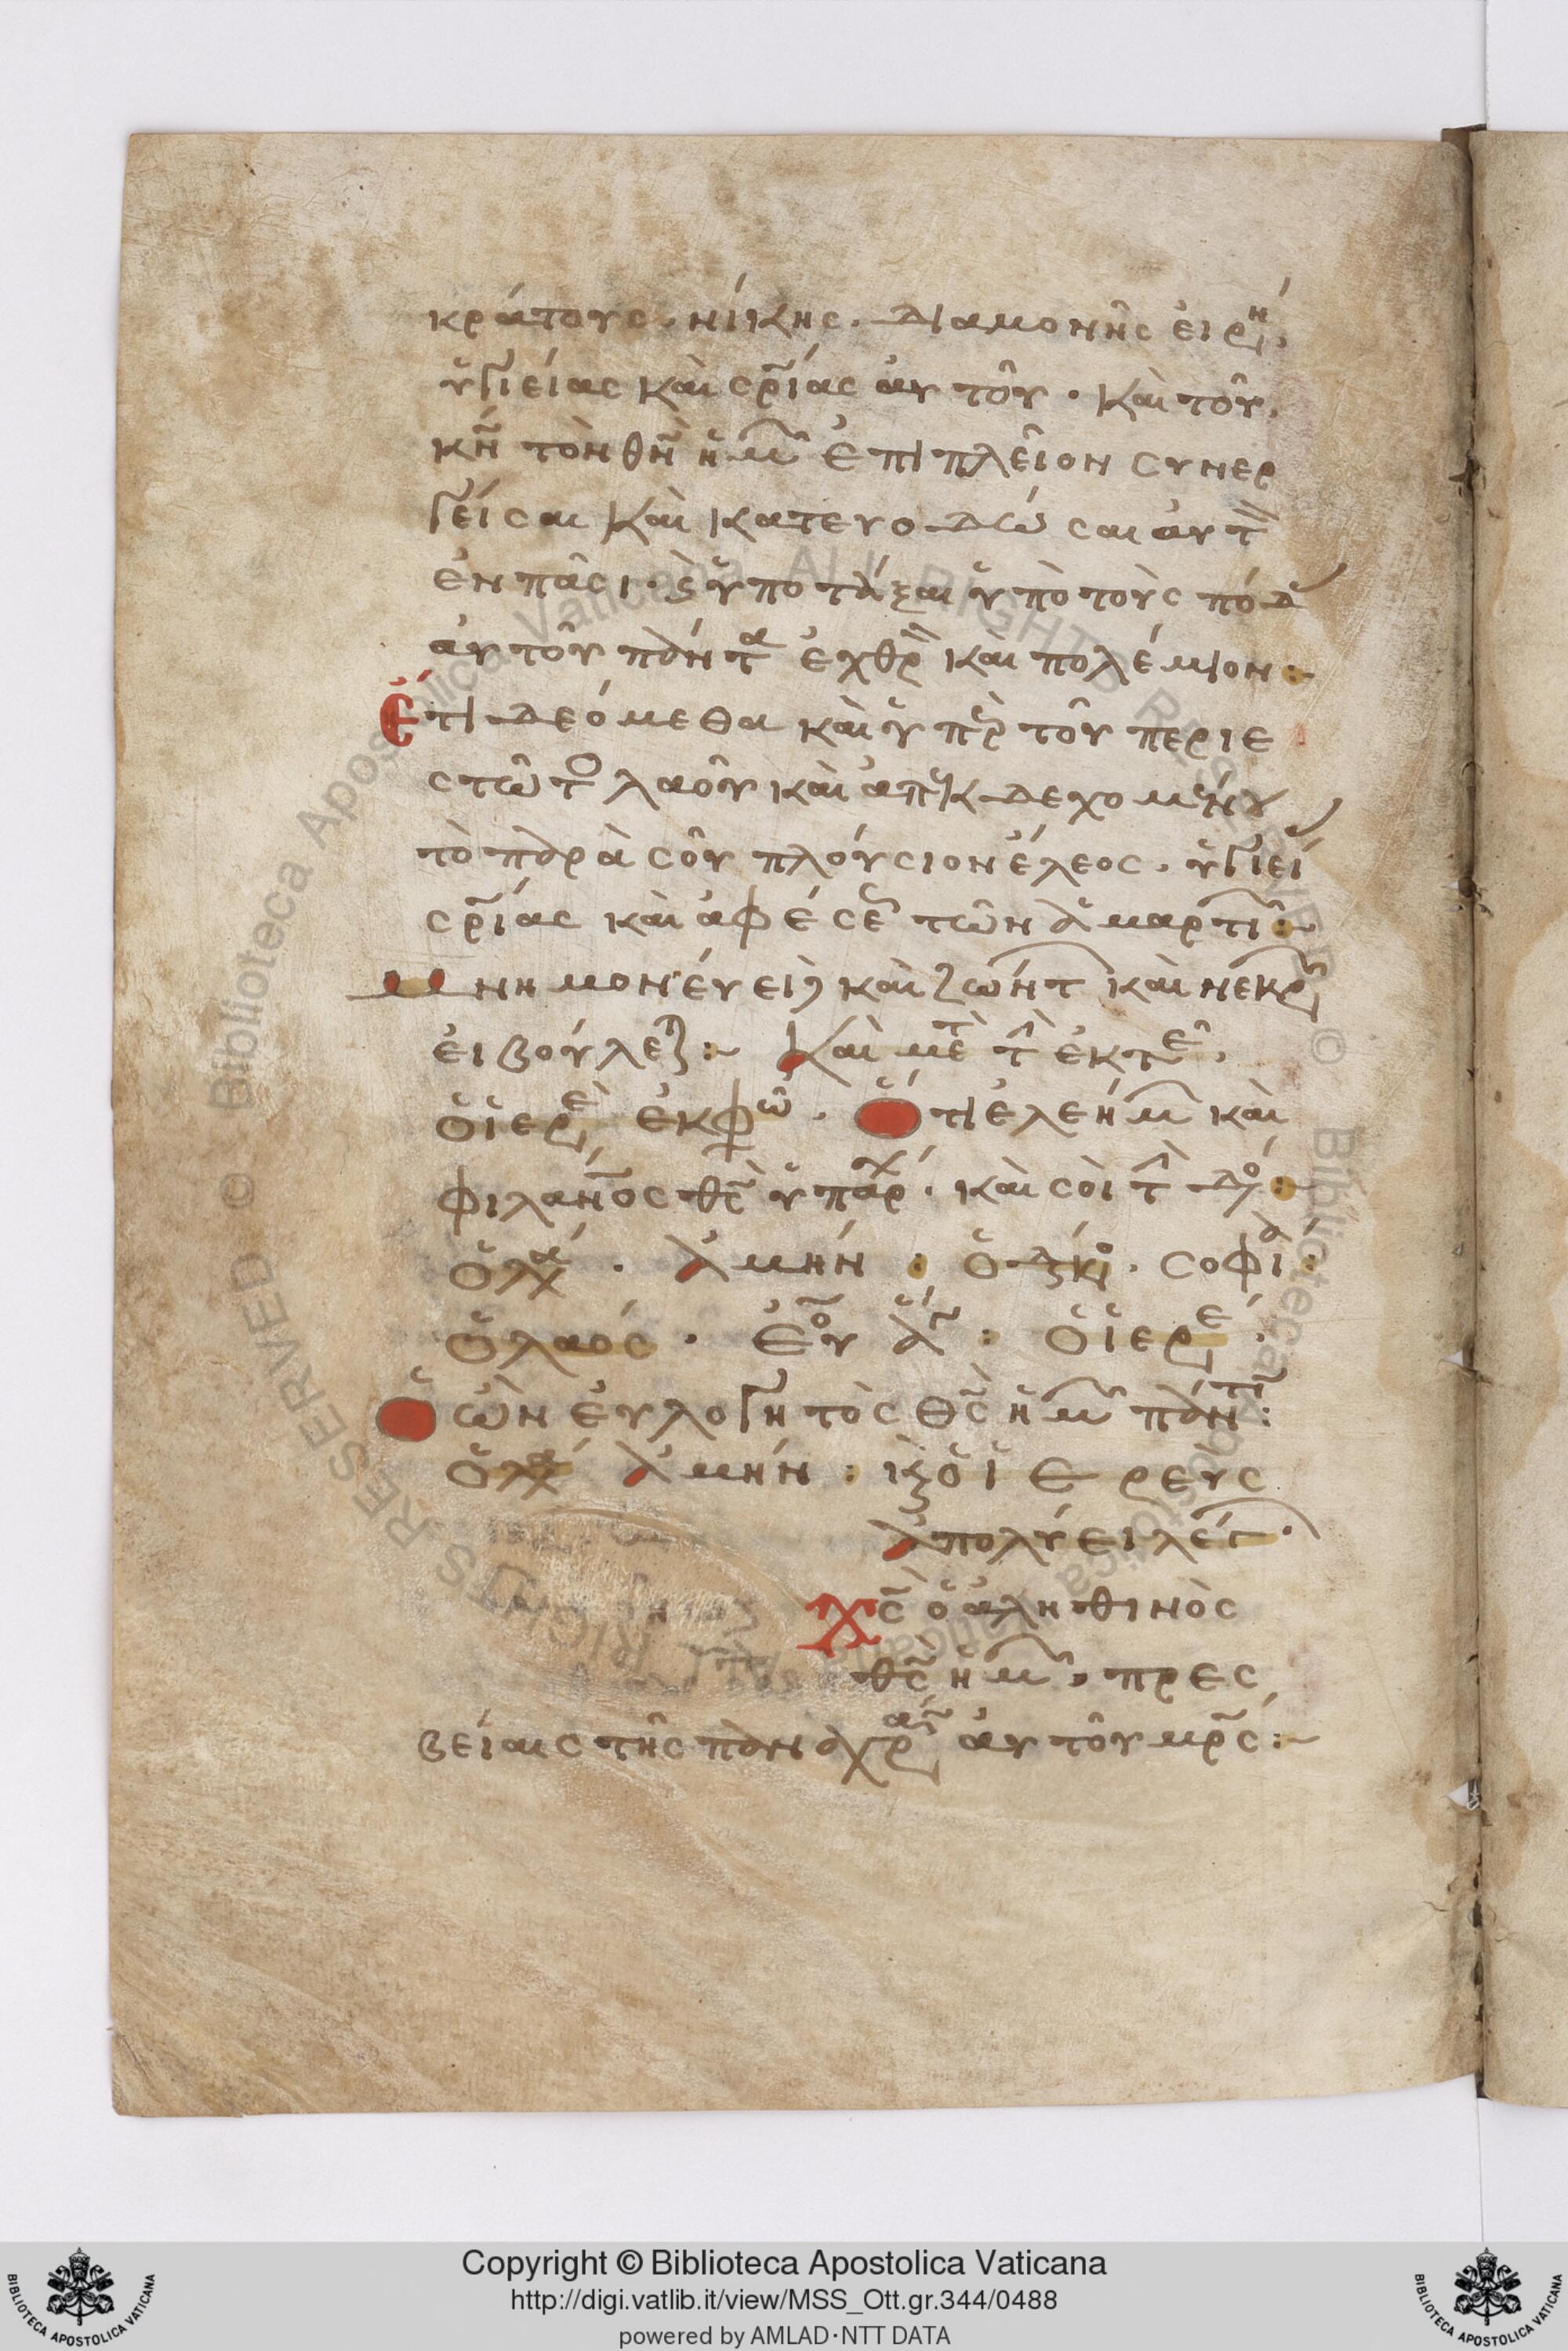 κράτους· νίκης· διαμονῆς εἰρή,
ὑγιείας καὶ σρ̅ίας αὐτοῦ· καὶ τοῦ,
κν̅ τὸν θν̅ ἡμ ἐπιπλεῖον συνερ
γεῖσαι καὶ κατευοδώσαι αὐτ
ἐν πᾶσι· ϛ ὑποτάξαι ὑπὸ τοὺς πόδ
αὐτοῦ πάντα ἐχθρ καὶ πολέμιον:~
Ἔτι δεόμεθα καὶ ὑπὲρ τοῦ περιε
στῶτο λαοῦ καὶ ἀπεκδεχομένου
τὸ παρὰ σοῦ πλούσιον ἔλεος· ὑγιεί
σρ̅ίας καὶ ἀφέσε τῶν ἁμαρτι:~
μνημονεύει καὶ ζώντ καὶ νεκρ
εἰ βούλε:~ Καὶ μετ τ ἐκτε,
ὁ ἱερε ἐκφω· Ὅτι ἐλεήμ καὶ
φιλανο̅ς θς̅ ὑπάρχ· καὶ σοὶ τ δο:~
ὁ λα· Ἀμήν: ὁ δκο· σοφία:
ὁ λαός· Ἐου Ἁ: ὁ ἱερε·
Ὁ ὢν εὐλογητὸς θς̅ ἡμ πάντ:
ὁ λα Ἀμήν: κ ὁ ἱερεὺς
Ἀπολύει λέγ·
Χς̅ ὁ ἀληθινὸς
θς̅ ἡμ, πρες
βείαις τῆς παναχρα αὐτοῦ μρ̅ς:~
Copyright © Biblioteca Apostolica Vaticana
http://digi.vatlib.it/view/MSS_Ott.gr.344/0488
powered by AMLAD·NTT DATA
BIBLIOTECA APOSTOLICA VATICANA
BIBLIOTECA APOSTOLICA VATICANA